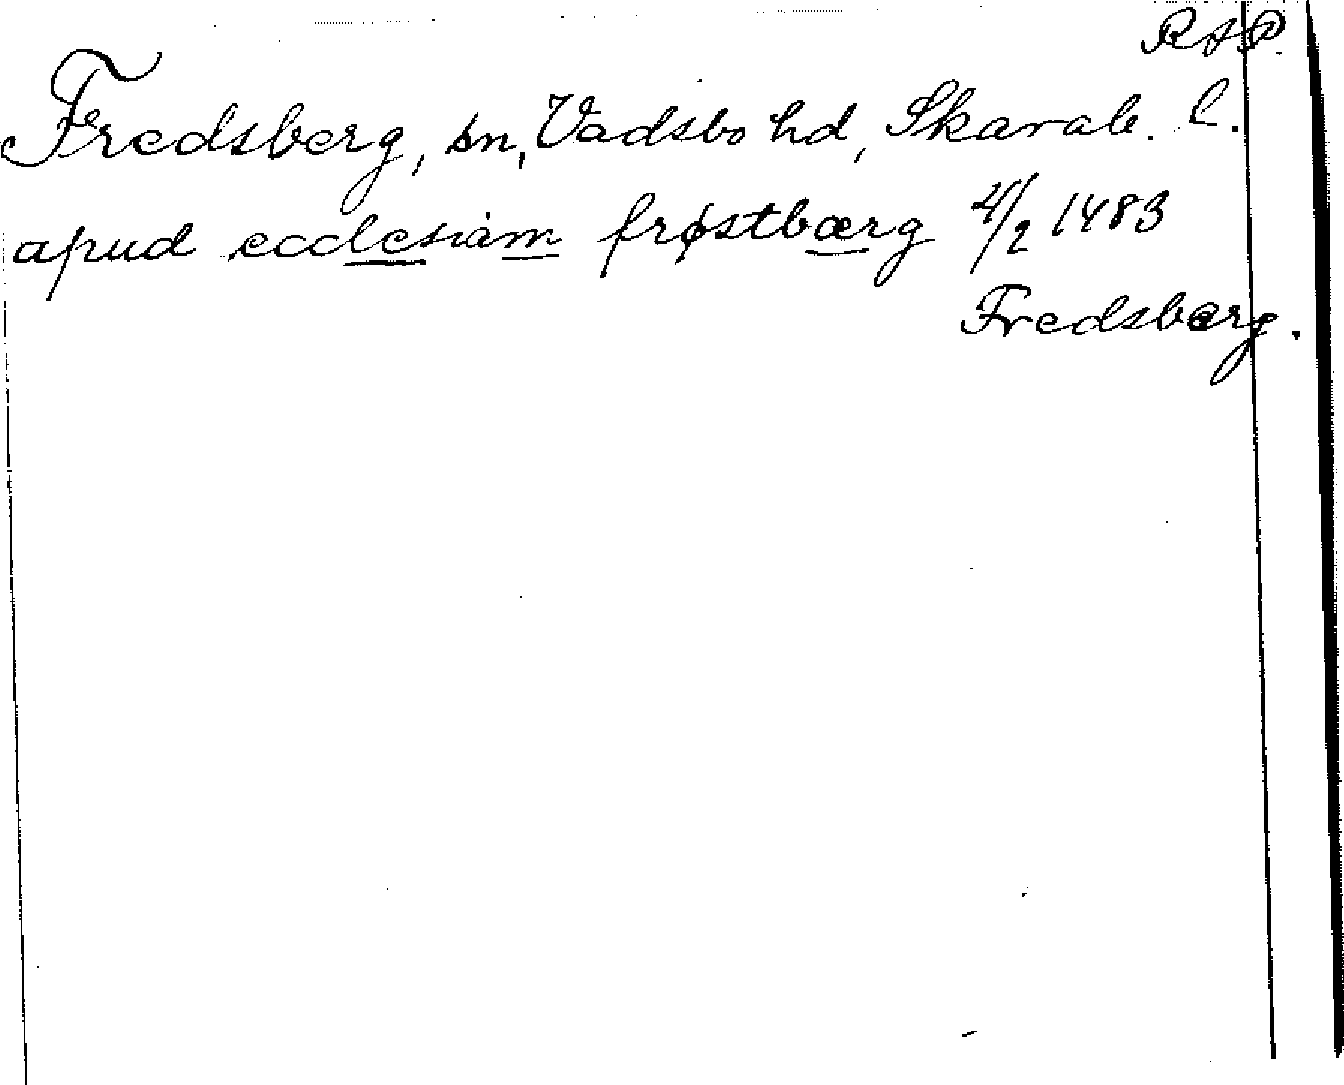 RAP.
Fredsberg, sn, Vadsbo hd, Skarab. l.
apud ecclesiam frøstbærg 4/2 1483
Fredsberg.